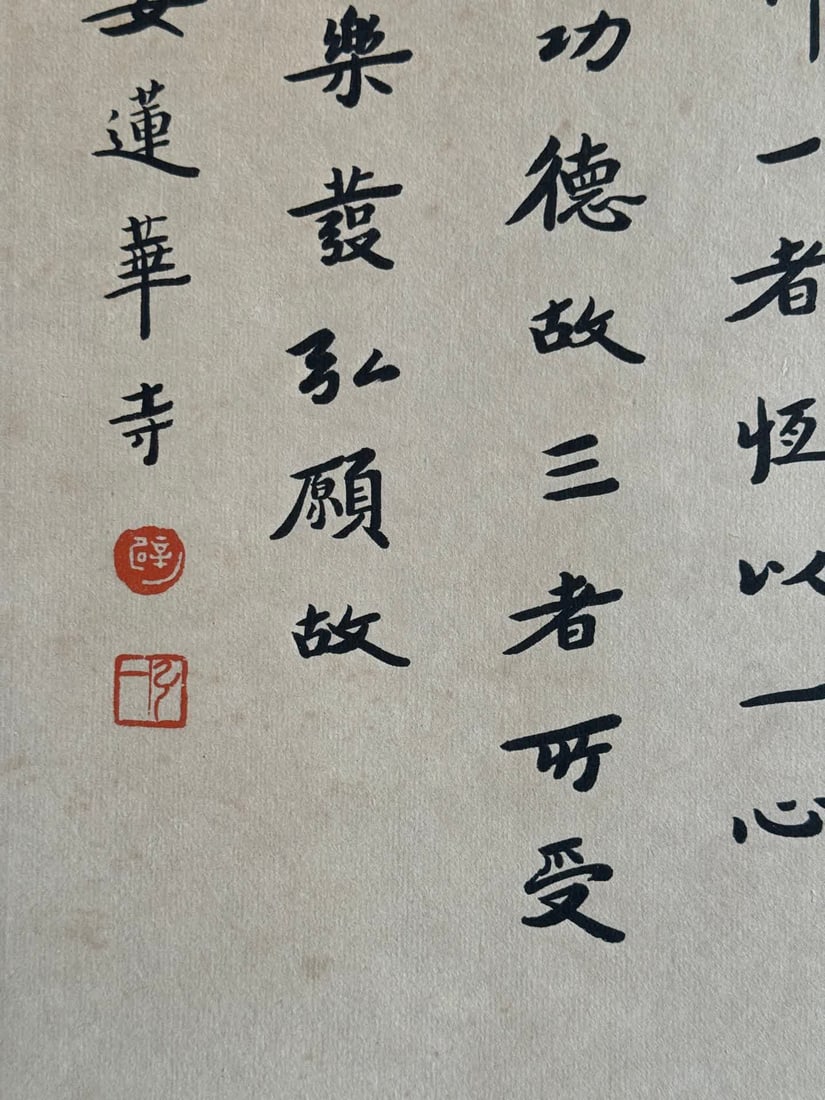 一者恆以一心
功德故三者所受
樂發弘願故
安蓮華寺
弘一